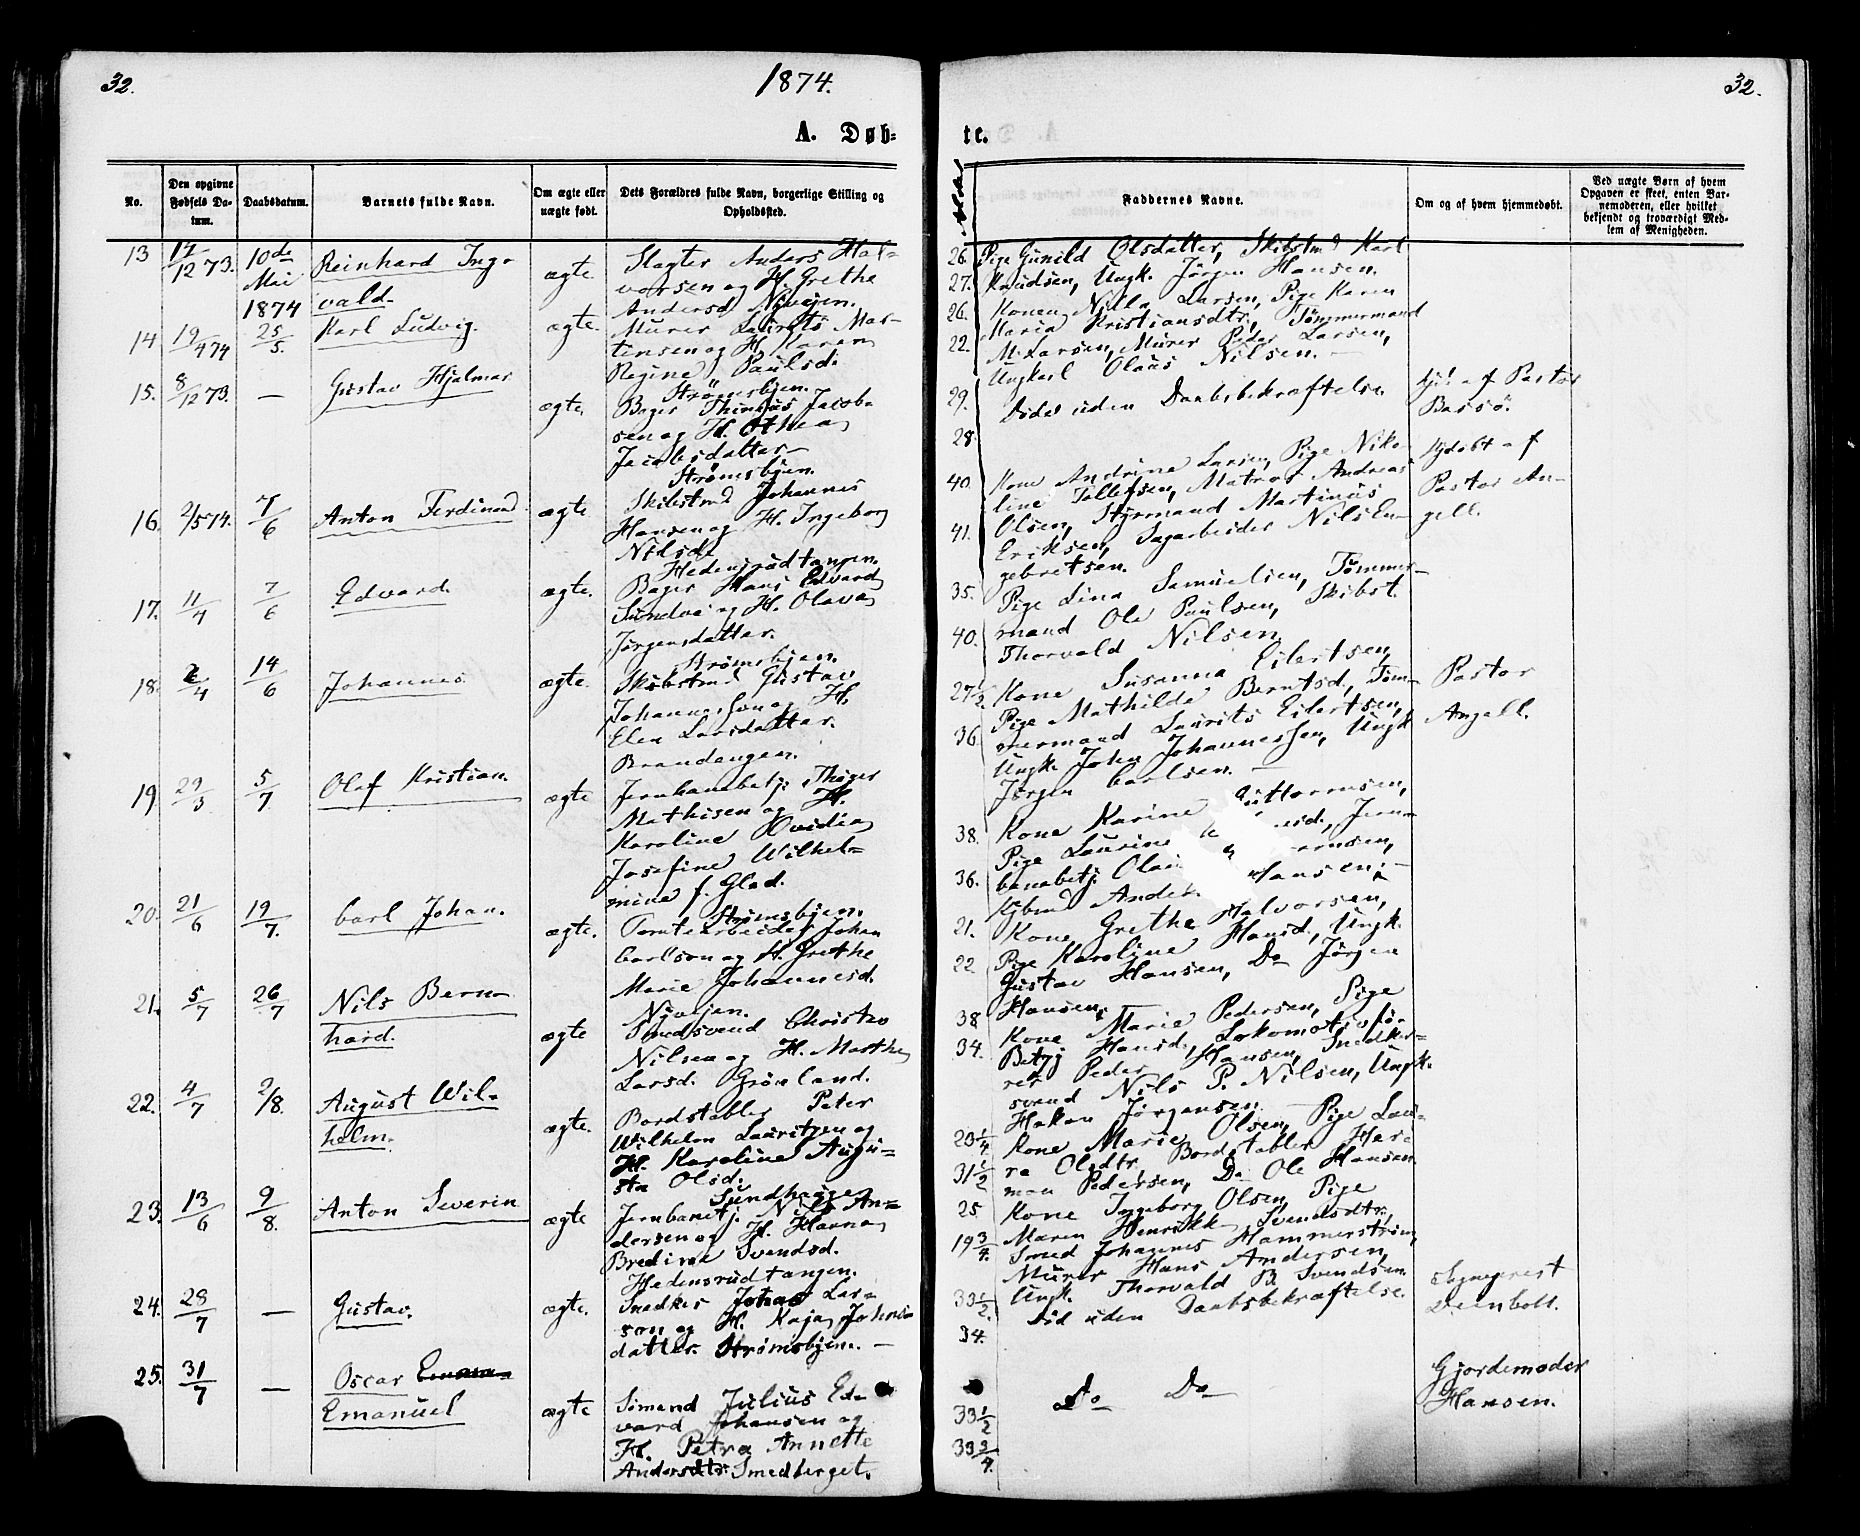 32.
1874.
32.
A. Døb-
te.
No.
Den opgivne Fødsels Datum.
Daabsdatum.
Barnets fulde Navn.
Om ægte eller uægte født.
Dets Forældres fulde Navn, borgerlige Stilling og Opholdssted.
Alder
Faddernes Navne.
Om og af hvem hjemmedøbt.
Ved uægte Børn af hvem Opgaven er skeet, enten Barnemoderen, eller hvilket bekjendt og troværdigt Medlem af Menigheden.
13 14/12 73. 10de Mai 1874
Reinhard Ing-
vald.
ægte
Slagter Anders Hal-
vorsen og H. Grethe
Andersd. Nivejen.
26. Pige Gunild Olsdatter, Skibstmd Karl
27. Knudsen, Ungk. Jørgen Hansen.
14 19/4 74 25/5.
Karl Ludvig.
ægte.
Murer Laurits Mar-
tinsen og H. Karen
Regine Paulsd.
Strømsbjen.
26. Konen Nilla Larsen, Pige Karen
Maria Kristiansdtr, Tømmermand
22. M. Larsen, Murer Peder Larsen,
Ungkarl Olaus Nilsen. —
15. 8/12 73. —
Gustav Hjalmar
ægte.
Bager Thinius Jacob-
sen og H. Othea
Jacobsdatter
Strømsbjen.
29.
28
Døde uden Daabsbekræftelse.
hjd. af Pastor
Bassø.
16. 2/5 74. 7/6
Anton Ferdinand
ægte
Skibstmd Johannes
Hansen og H. Ingeborg
Nilsd.
Hedensrudtangen.
40. Kone Andrine Larsen, Pige Niko-
line Tollefsen, Matros Andreas
41. Olsen, Styrmand Martinius
Eriksen, Sagarbeider Nils En-
gebretsen.
hjdøbt af
Pastor An-
gell.
17. 11/4 7/6
Edvard.
ægte.
Bager Hans Edvard
Sundvei og H. Olava
Jørgensdatter.
Strømsbjen.
35. Pige Lina Samuelsen, Tømmer-
mand Ole Paulsen, Skibst.
40. Thorvald Nilsen.
18. 2/4 14/6
Johannes
ægte.
Skibstmd Gustav
Johannessen og H.
Elen Larsdatter.
Brandengen.
27½ Kone Susanna Eilertsen,
Pige Mathilde Berntsd, Tøm-
36 mermand Laurits Eilertsen,
Ungk. John Johannessen, Ungk
Jørgen Carlsen. —
Pastor
Angell.
19 29/3 5/7
Olaf Kristian.
ægte
Jernbanebetj. Thiger
Mathisen og H.
Karoline Ovidia
Josefine Wilhel-
mine f. Glad.
Strømsbjen.
38. Kone Karine Guttormsen,
Pige Laurine
36. banebetj. Ola
Hansen. —
20. 21/6 19/7.
Carl Johan.
ægte.
Tomtearbeider Johan
Carlson og H. Grethe
Marie Johannesd.
Nivejen.
21. Kone Grethe Halvorsen,
22 Pige Karoline Hansd, Ungk.
Gustav Hansen, Do Jørgen
Hansen. —
21. 5/7 26/7
Nils Bern-
hard.
ægte
Smedsvend Christian
Nilsen og H. Marthe
Larsd. Grønland.
38 Kone Marie Pedersen, Pige
34. Betzy Hansd, Lokomotivfør-
rer Peder Hansen, Snedker-
svend Nils P. Nilsen, Ungk.
Hakon Jørgensen —
22. 4/7 2/8.
August Wil-
helm.
ægte.
Bordstabler Peter
Wilhelm Lauritzen og
H. Karoline Augu-
sta Olsd.
Sundhaugen
23¼ Kone Marie Olsen, Pige Lau-
31½ ra Olsdtr, Bordstabler Her-
man Pedersen, Do Ole Hansen
23. 13/6 9/8.
Anton Severin
ægte
Jernbanetj. Nils An-
dersen og H. Hanna
Bredine Svendsd.
Hedensrudtangen.
25 Kone Ingeborg Olsen, Pige
Maren Henrikke Svendsdtr,
19¾ Smed Johannes Hammerstrøm,
Murer Hans Andersen,
Ungk. Thorvald B. Svendsen
24. 28/7 —
Gustav.
ægte.
Snedker Johan Lar-
son og H. Kaja Johans-
datter. Strømsbjen. —
33½.
34.
Død uden Daabsbekræftelse
Sogneprest
Deinboll.
25. 31/7 —
Oscar
Emanuel
ægte
Sømand Julius Ed-
vard Johansen og
H. Petra Annette
Andersdtr. Smedberget.
33½
33¾.
Do Do
Gjordemoder
Hansen.